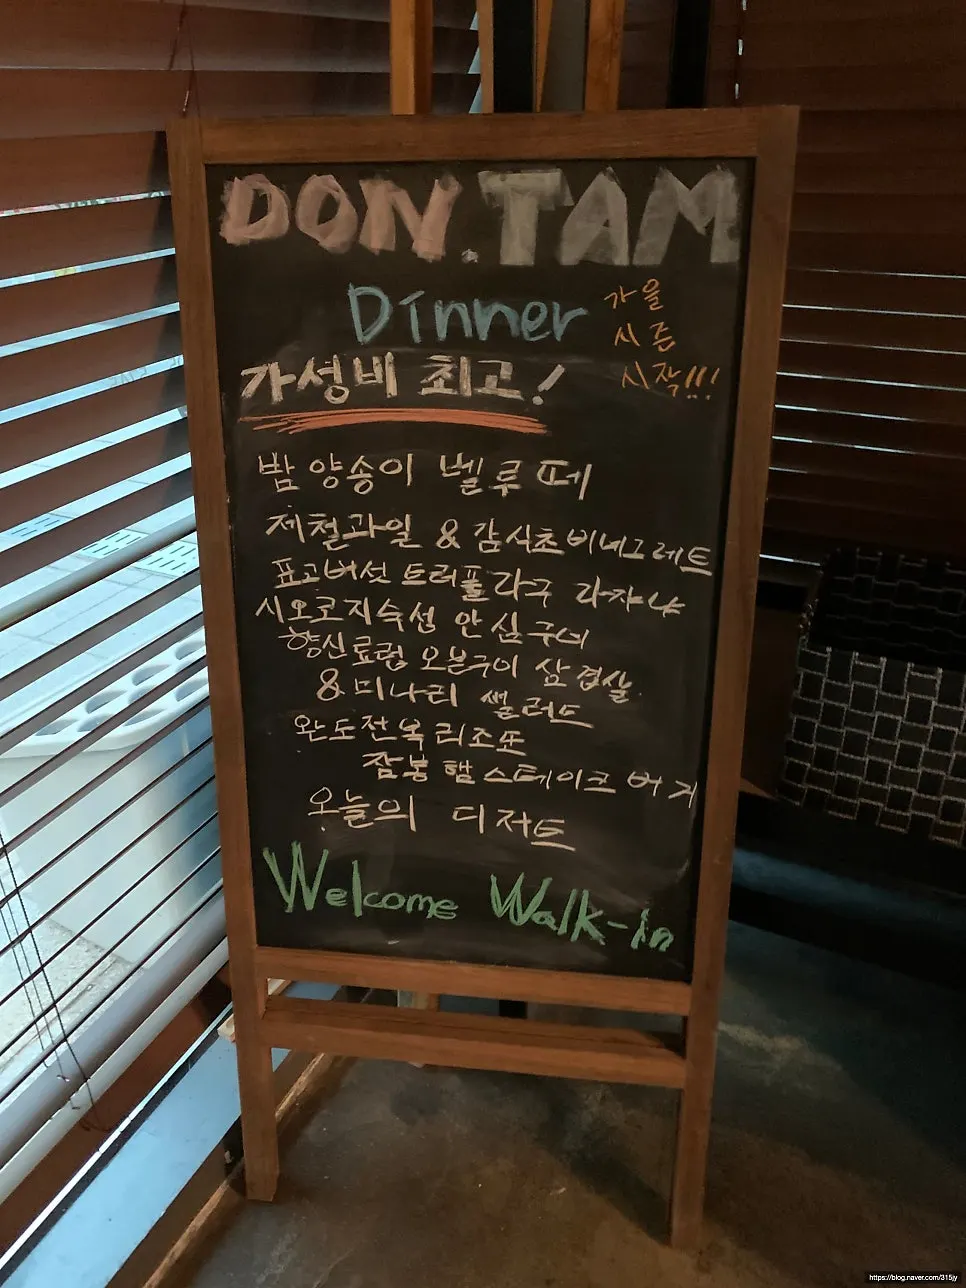 DON.TAM
Dinner
가을
시즌
시작!!!
가성비 최고!
밤 양송이 벨루떼
제철과일 & 감식초비네그레트
표고버섯 트러플라구 라쟈냐
시오코지숙성 안심구이
향신료럽 오븐구이 삼겹살
& 미나리 샐러드
완도전복리조또
잠봉햄스테이크 버거
오늘의 디저트
Welcome Walk-in
https://blog.naver.com/315jy